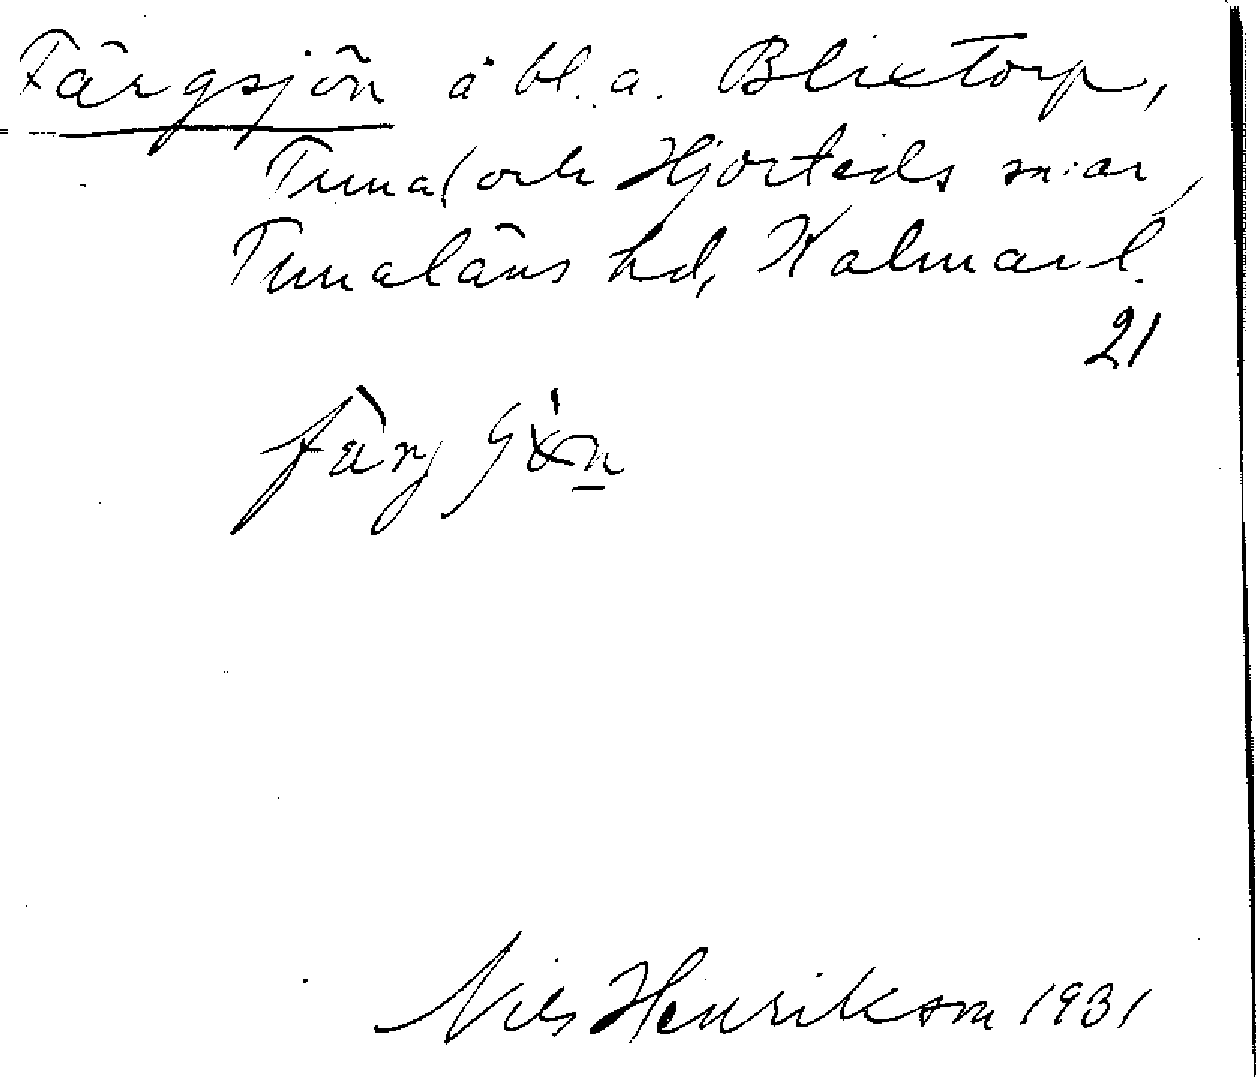 Färgsjön å bl.a. Blixtorp,
Tuna( och Hjorteds sn:ar,
Tunaläns hd, Kalmar l.
21
Nils Henrikson 1931